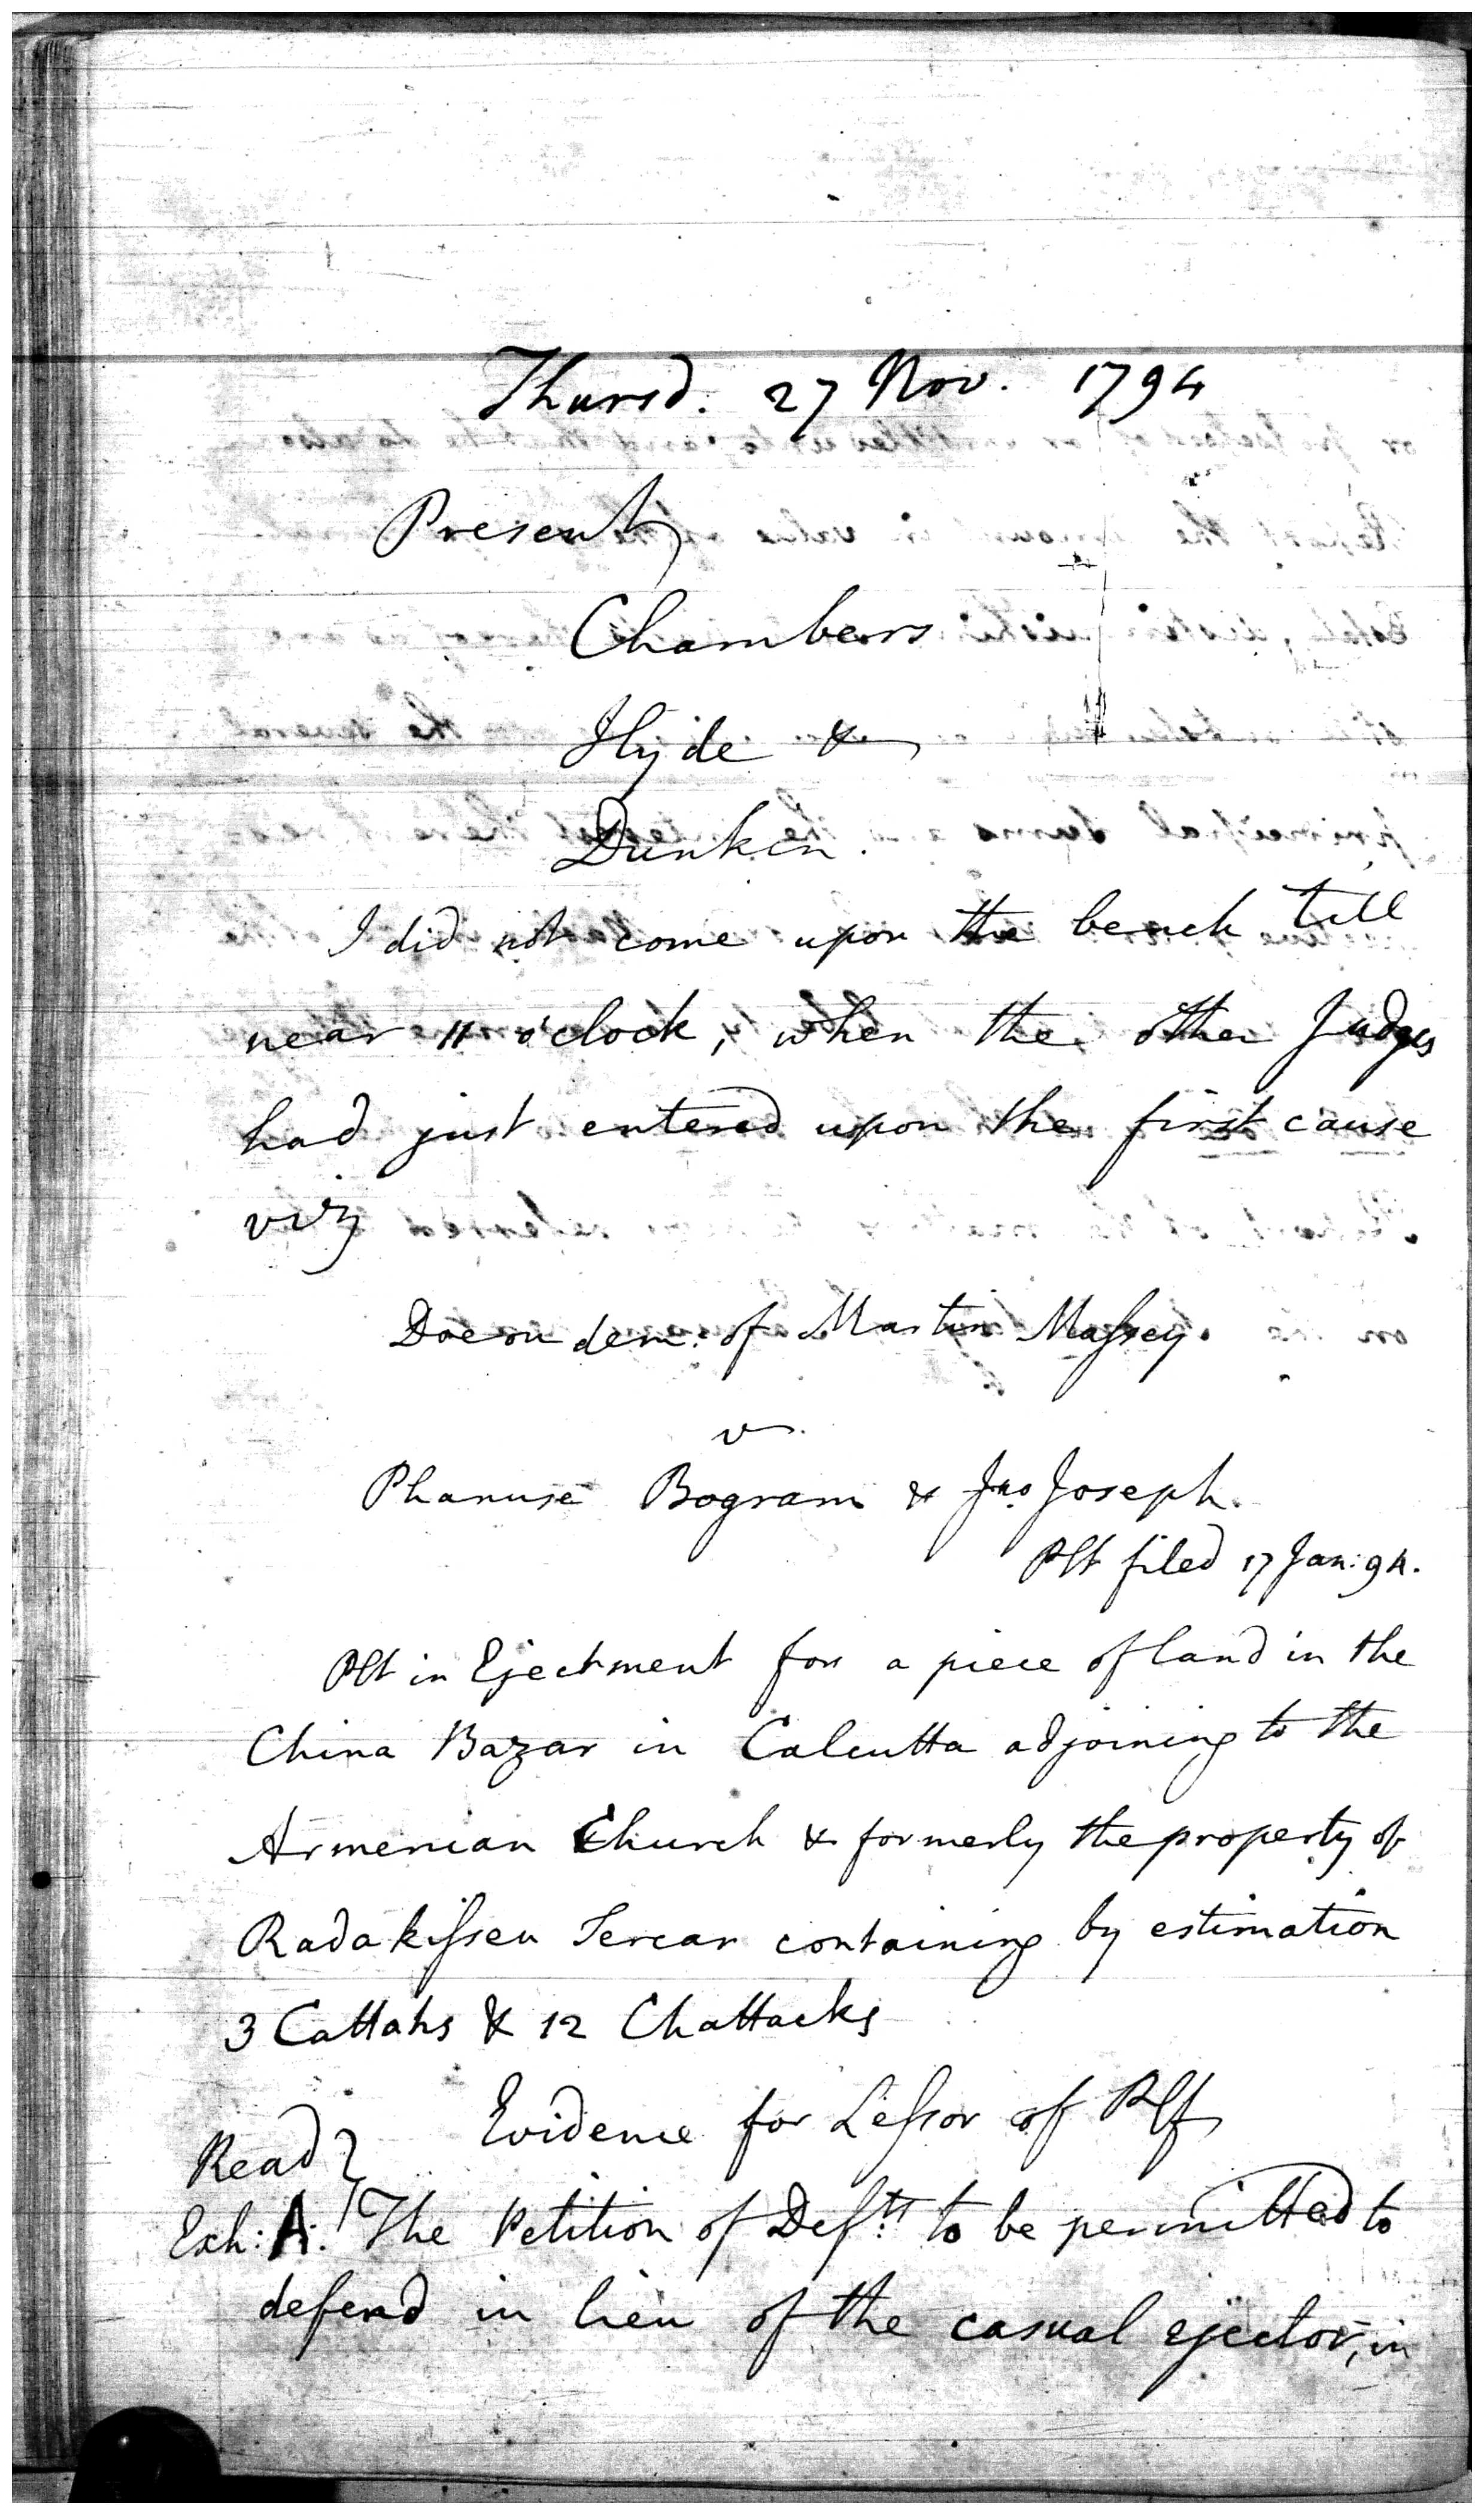 Thursd. 27 Nov. 1794
Present
Chambers
Hyde &
Dunkin.
I did not come upon the bench till
near 11 o'clock, when the other Judges
had just entered upon the first cause
viz
Doe on dem: of Martin Massey
v.
Phanuse Bogram & Jno Joseph.
Plt filed 17 Jan: 94.
Plt in Ejectment for a piece of land in the
China Bazar in Calcutta adjoining to the
Armenian Church & formerly the property of
Radakissen Sercar containing by estimation
3 Cattahs & 12 Chattacks
Evidence for Lessor of Plf
Read
Exh: A: The Petition of Defts to be permitted to
defend in lieu of the casual ejector, in